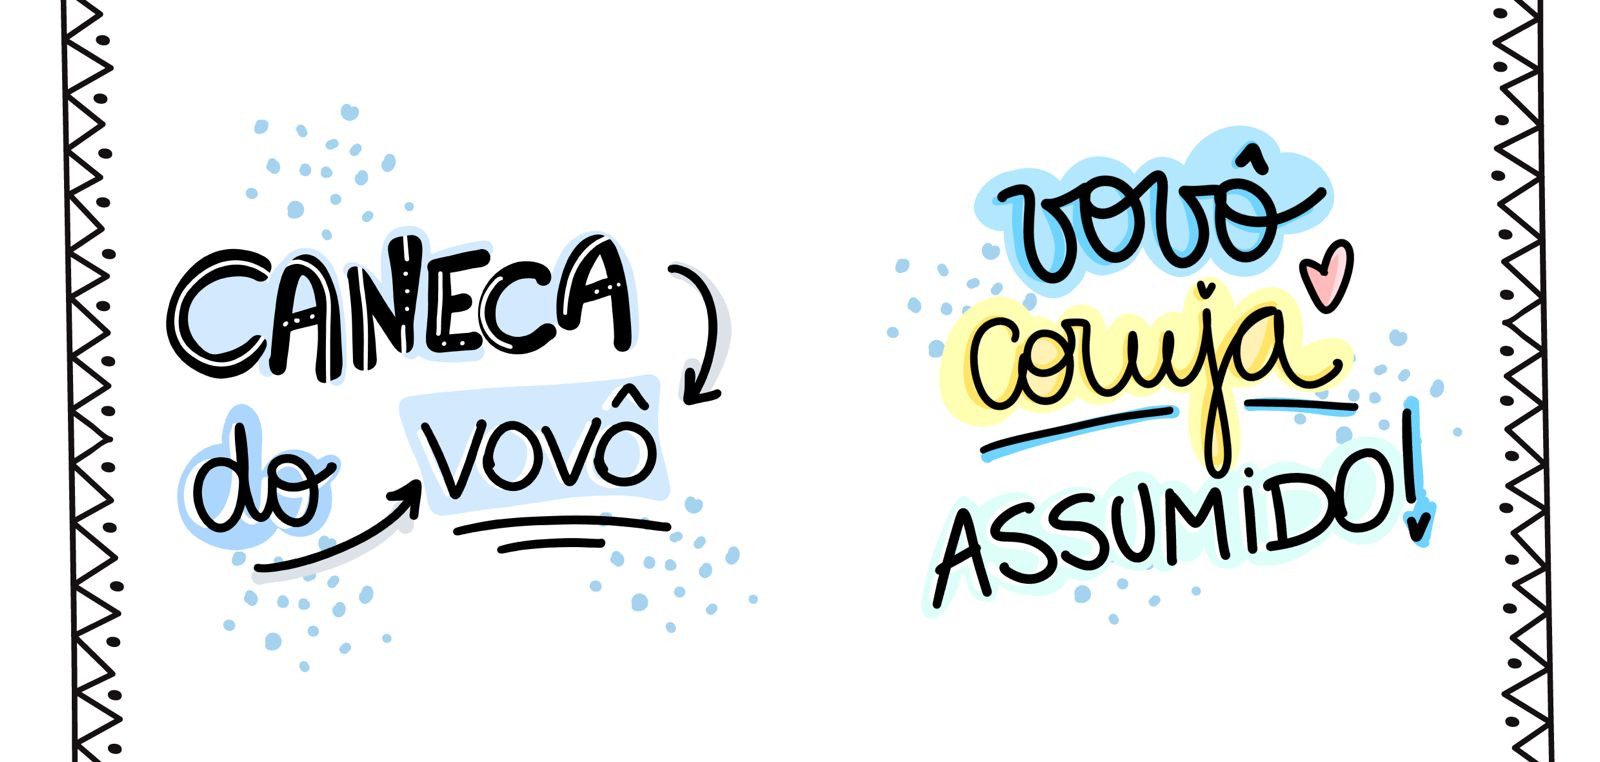 CANECA
do VOVÔ
vovô
coruja
ASSUMIDO!